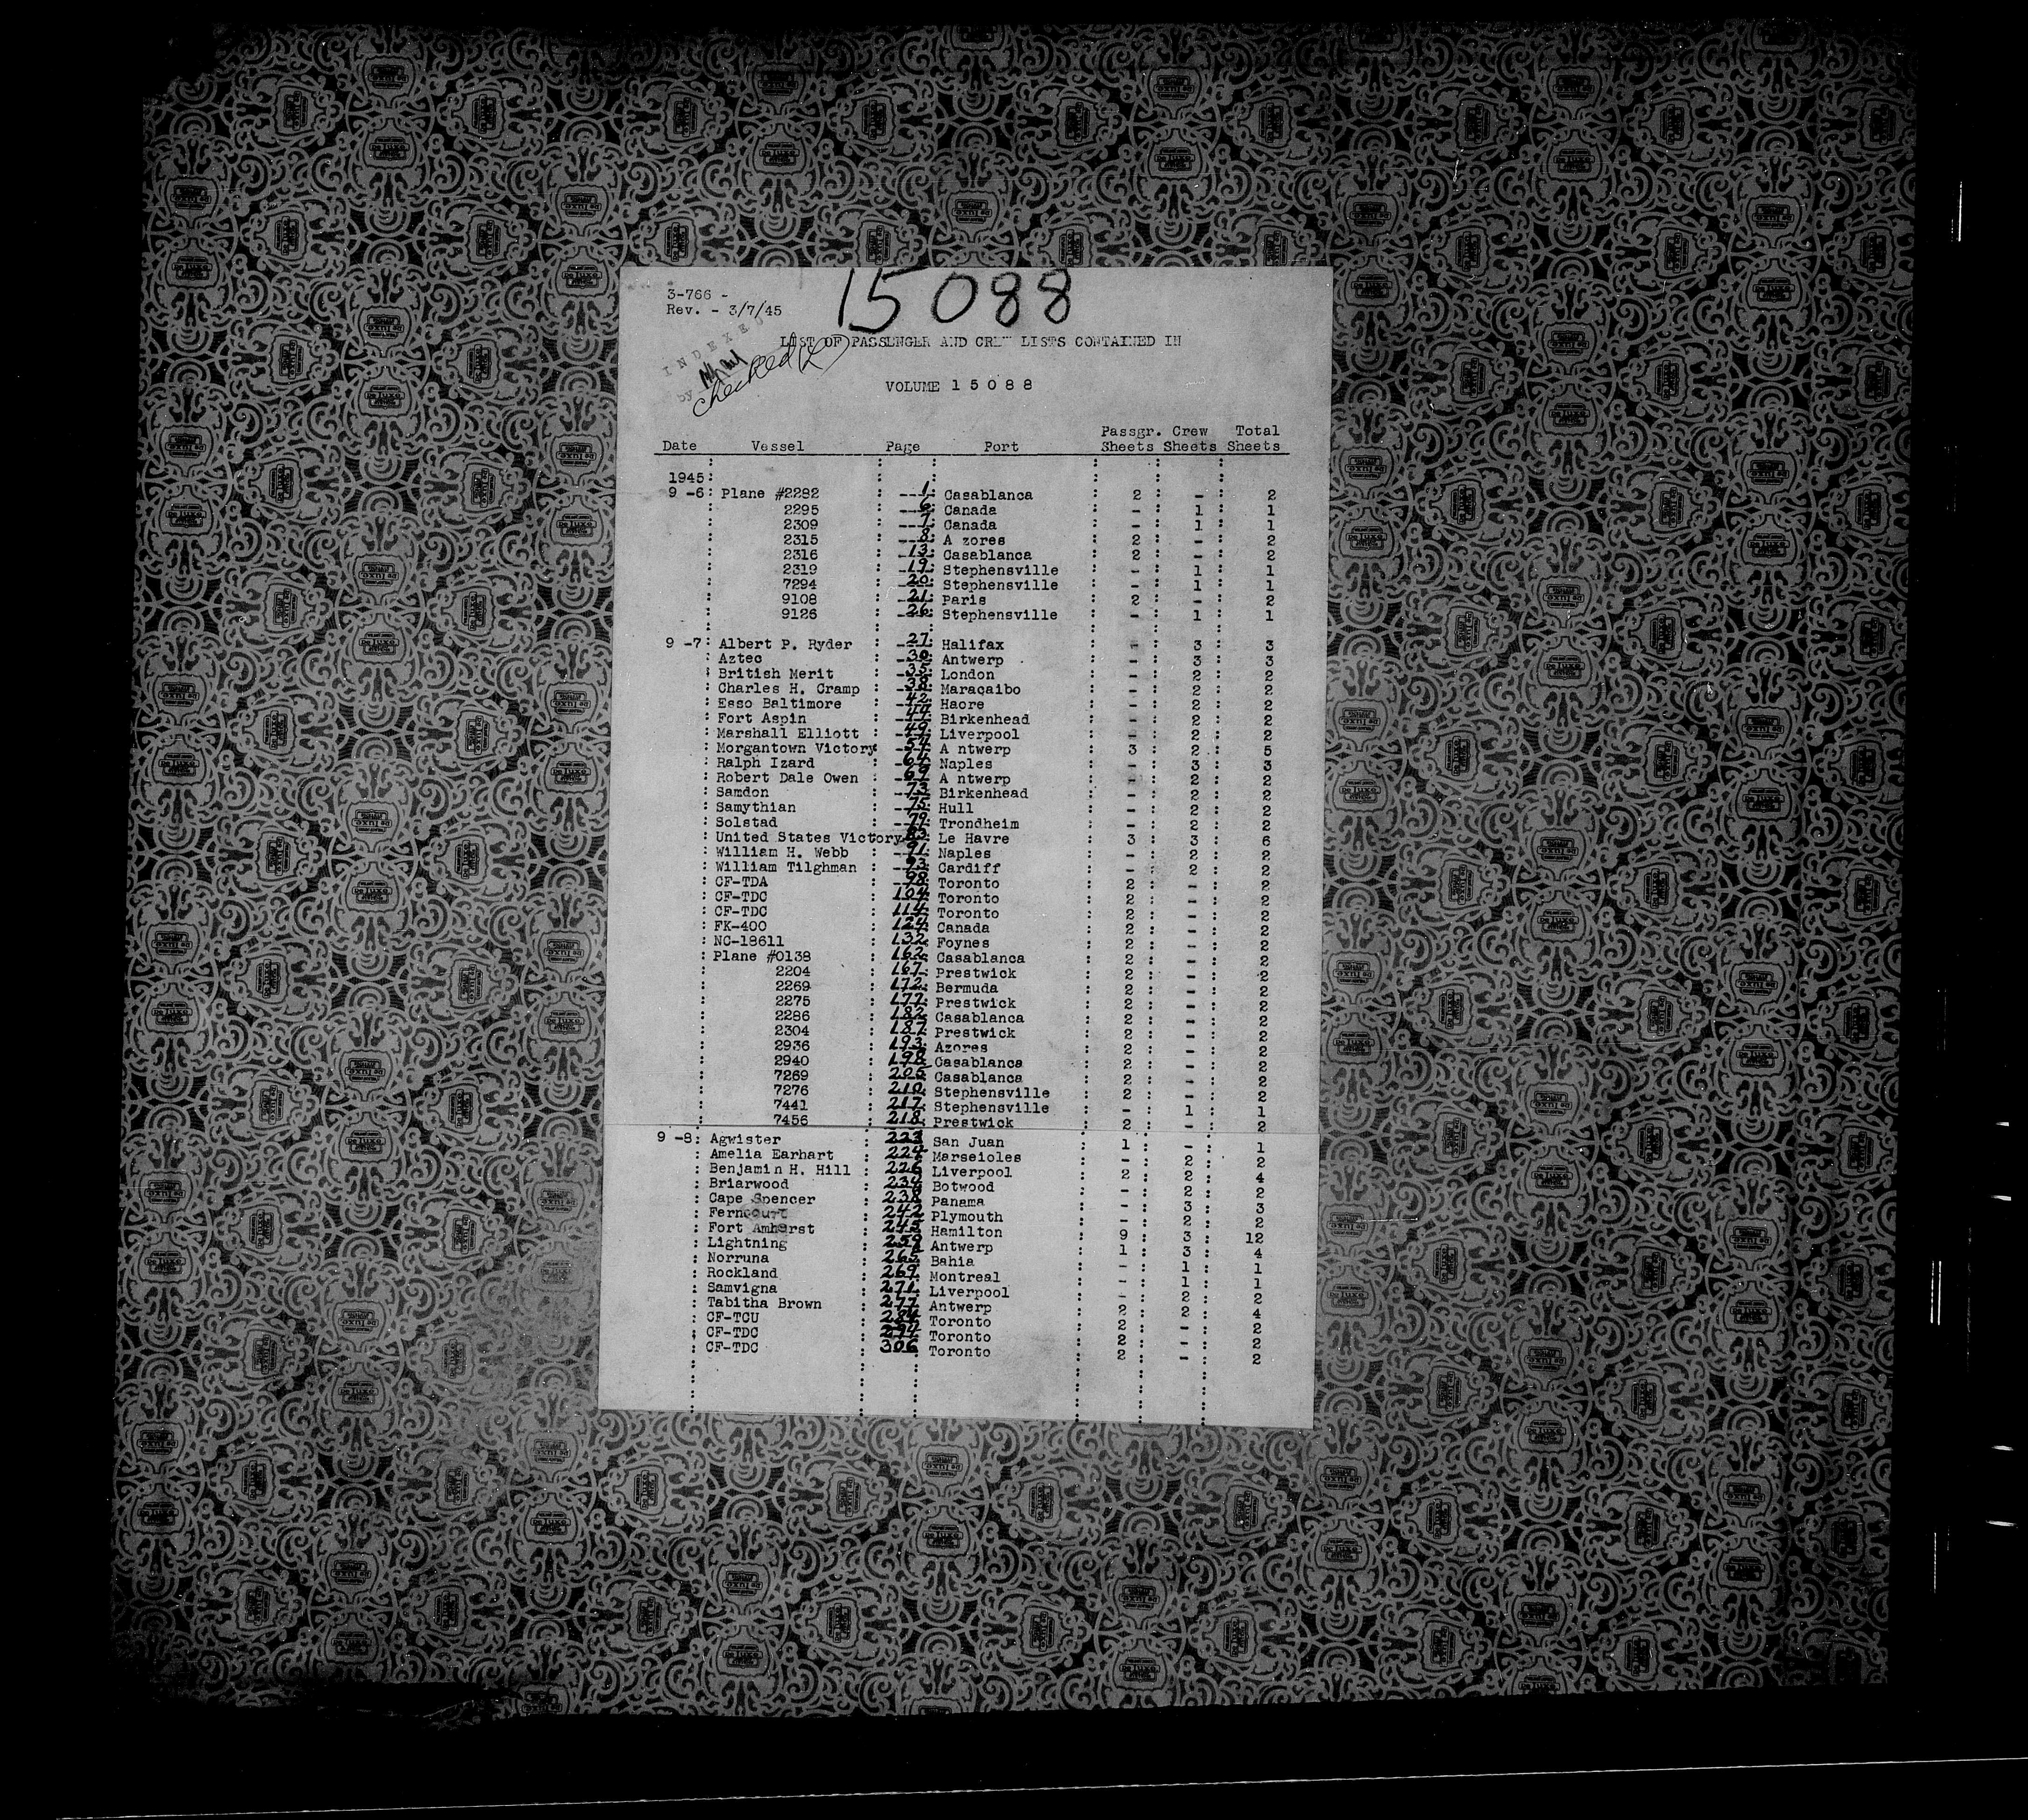 15088
3-766 -
Rev. - 3/7/45
INDEXED
by
checked
LIST OF PASSENGER AND CREW LISTS CONTAINED IN
VOLUME 1 5 0 8 8
Date Vessel Page Port Passgr. Sheets Crew Sheets Total Sheets
1945:
9 -6: Plane #2282 : 1: Casablanca : 2 : - : 2
: 2295 : 6: Canada : - : 1 : 1
: 2309 : 7: Canada : - : 1 : 1
: 2315 : 8: A zores : 2 : - : 2
: 2316 : 13: Casablanca : 2 : - : 2
: 2319 : 19: Stephensville : - : 1 : 1
: 7294 : 20: Stephensville : - : 1 : 1
: 9108 : 21: Paris : 2 : - : 2
: 9126 : 26: Stephensville : - : 1 : 1
9 -7: Albert P. Ryder : 27: Halifax : - : 3 : 3
: Aztec : 30: Antwerp : - : 3 : 3
: British Merit : 35: London : - : 2 : 2
: Charles H. Cramp : 38: Maracaibo : - : 2 : 2
: Esso Baltimore : 42: Haore : - : 2 : 2
: Fort Aspin : 44: Birkenhead : - : 2 : 2
: Marshall Elliott : 49: Liverpool : - : 2 : 2
: Morgantown Victory: 54: A ntwerp : 3 : 2 : 5
: Ralph Izard : 64: Naples : - : 3 : 3
: Robert Dale Owen : 69: A ntwerp : - : 2 : 2
: Samdon : 73: Birkenhead : - : 2 : 2
: Samythian : 75: Hull : - : 2 : 2
: Solstad : 79: Trondheim : - : 2 : 2
: United States Victory : Le Havre : 3 : 3 : 6
: William H. Webb : 91: Naples : - : 2 : 2
: William Tilghman : 93: Cardiff : - : 2 : 2
: CF-TDA : 98: Toronto : 2 : - : 2
: CF-TDC : 104: Toronto : 2 : - : 2
: CF-TDC : 114: Toronto : 2 : - : 2
: FK-400 : 124: Canada : 2 : - : 2
: NC-18611 : 132: Foynes : 2 : - : 2
: Plane #0138 : 162: Casablanca : 2 : - : 2
: 2204 : 167: Prestwick : 2 : - : 2
: 2269 : 172: Bermuda : 2 : - : 2
: 2275 : 177: Prestwick : 2 : - : 2
: 2286 : 182: Casablanca : 2 : - : 2
: 2304 : 187: Prestwick : 2 : - : 2
: 2936 : 193: Azores : 2 : - : 2
: 2940 : 198: Casablanca : 2 : - : 2
: 7269 : 205 Casablanca : 2 : - : 2
: 7276 : 210: Stephensville : 2 : - : 2
: 7441 : 217: Stephensville : - : 1 : 1
: 7456 : 218: Prestwick : 2 : - : 2
9 -8: Agwister : 223 San Juan : 1 : - : 1
: Amelia Earhart : 224: Marseioles : - : 2 : 2
: Benjamin H. Hill : 226: Liverpool : 2 : 2 : 4
: Briarwood : 234 Botwood : - : 2 : 2
: Cape Spencer : 238 Panama : - : 3 : 3
: Ferncourt : 242 Plymouth : - : 2 : 2
: Fort Amherst : 245 Hamilton : 9 : 3 : 12
: Lightning : 259 Antwerp : 1 : 3 : 4
: Norruna : 265 Bahia : - : 1 : 1
: Rockland : 269: Montreal : - : 1 : 1
: Samvigna : 271: Liverpool : - : 2 : 2
: Tabitha Brown : 277: Antwerp : 2 : 2 : 4
: CF-TCU : 284 Toronto : 2 : - : 2
: CF-TDC : 294: Toronto : 2 : - : 2
: CF-TDC : 306: Toronto : 2 : - : 2